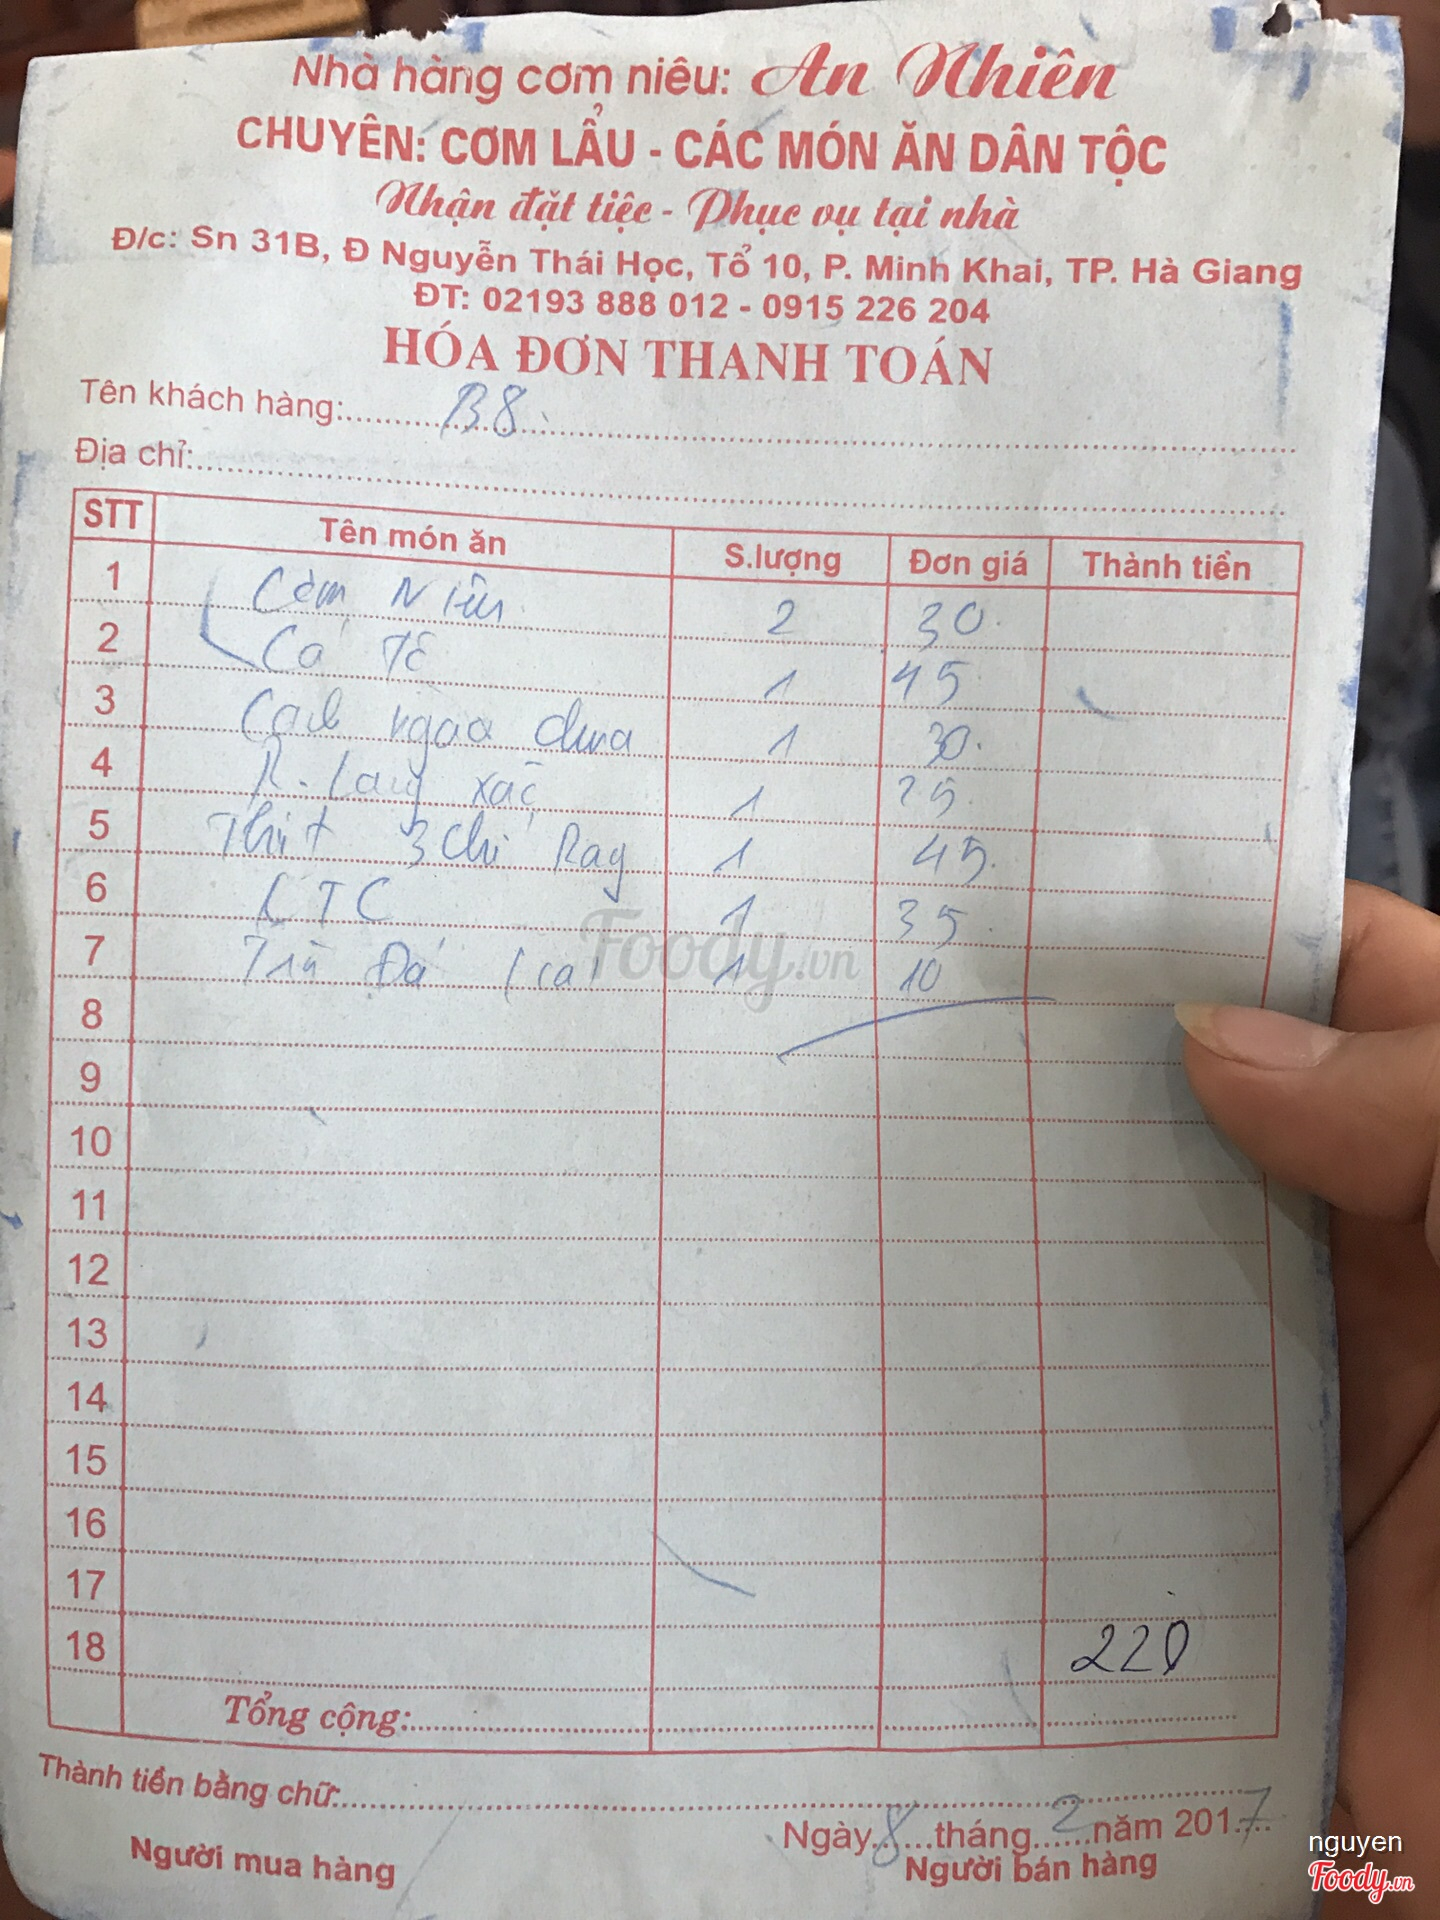 Nhà hàng cơm niêu: An Nhiên
CHUYÊN: CƠM LẨU - CÁC MÓN ĂN DÂN TỘC
Nhận đặt tiệc - Phục vụ tại nhà
Đ/c: Sn 31B, Đ Nguyễn Thái Học, Tổ 10, P. Minh Khai, TP. Hà Giang
ĐT: 02193 888 012 - 0915 226 204
HÓA ĐƠN THANH TOÁN
Tên khách hàng: B8
Địa chỉ:
STT Tên món ăn S.lượng Đơn giá Thành tiền
1 Cơm Niêu 2 30
2 Cá 1 45
3 Canh ngao dưa 1 30
4 R. Lang xào 1 25
5 Thịt 3 chỉ Rang 1 45
6 KTC 1 35
7 Trà Đá (ca) 1 10
8
9
10
11
12
13
14
15
16
17
18 220
Tổng cộng:
Thành tiền bằng chữ:
Ngày 8 tháng 2 năm 2017
Người mua hàng Người bán hàng
Foody.vn
nguyen
Foody.vn